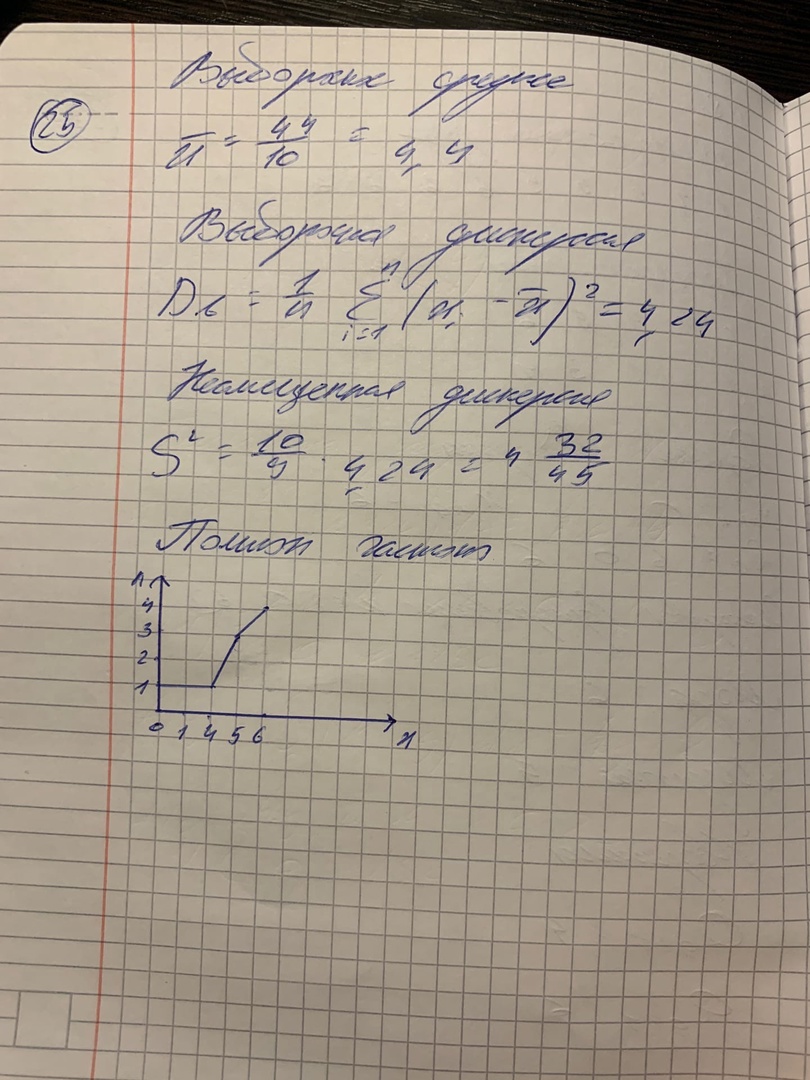 Выборочное среднее
25
x̄ = 44/10 = 4,4
Выборочная дисперсия
Dв = 1/n n∑i=1 (xi - x̄)² = 4,24
Несмещенная дисперсия
S² = 10/9 · 4,24 = 4 32/45
Полигон частот
n
4
3
2
1
0 1 4 5 6 x